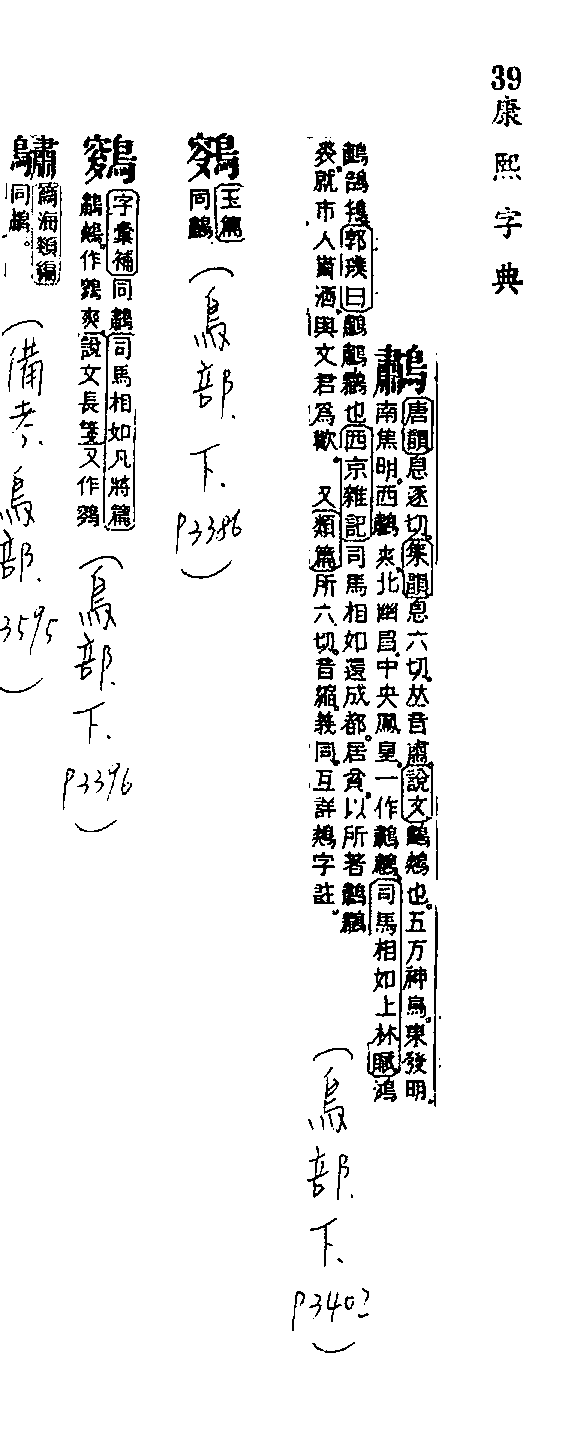 39
康熙字典
鷫
唐韻息逐切集韻息六切𠀤音肅說文鷫鷞也五方神鳥東發明
南焦明西鷫爽北幽昌中央鳳皇一作鷫鸘司馬相如上林賦鴻
鷫鵠鴇郭璞曰鷫鷫鸘也西京雜記司馬相如還成都居貧以所著鷫鸘
裘就市人貰酒與文君爲歡 又類篇所六切音縮義同互詳鷞字註
(鳥部.下.P340?)
玉篇
同鷫
(鳥部.下.P3386)
字彙補同鷫司馬相如凡將篇
鷫鷞作爽說文長箋又作
(鳥部.下.P3396)
篇海類編
同鷫。
(備考.鳥部.3595)